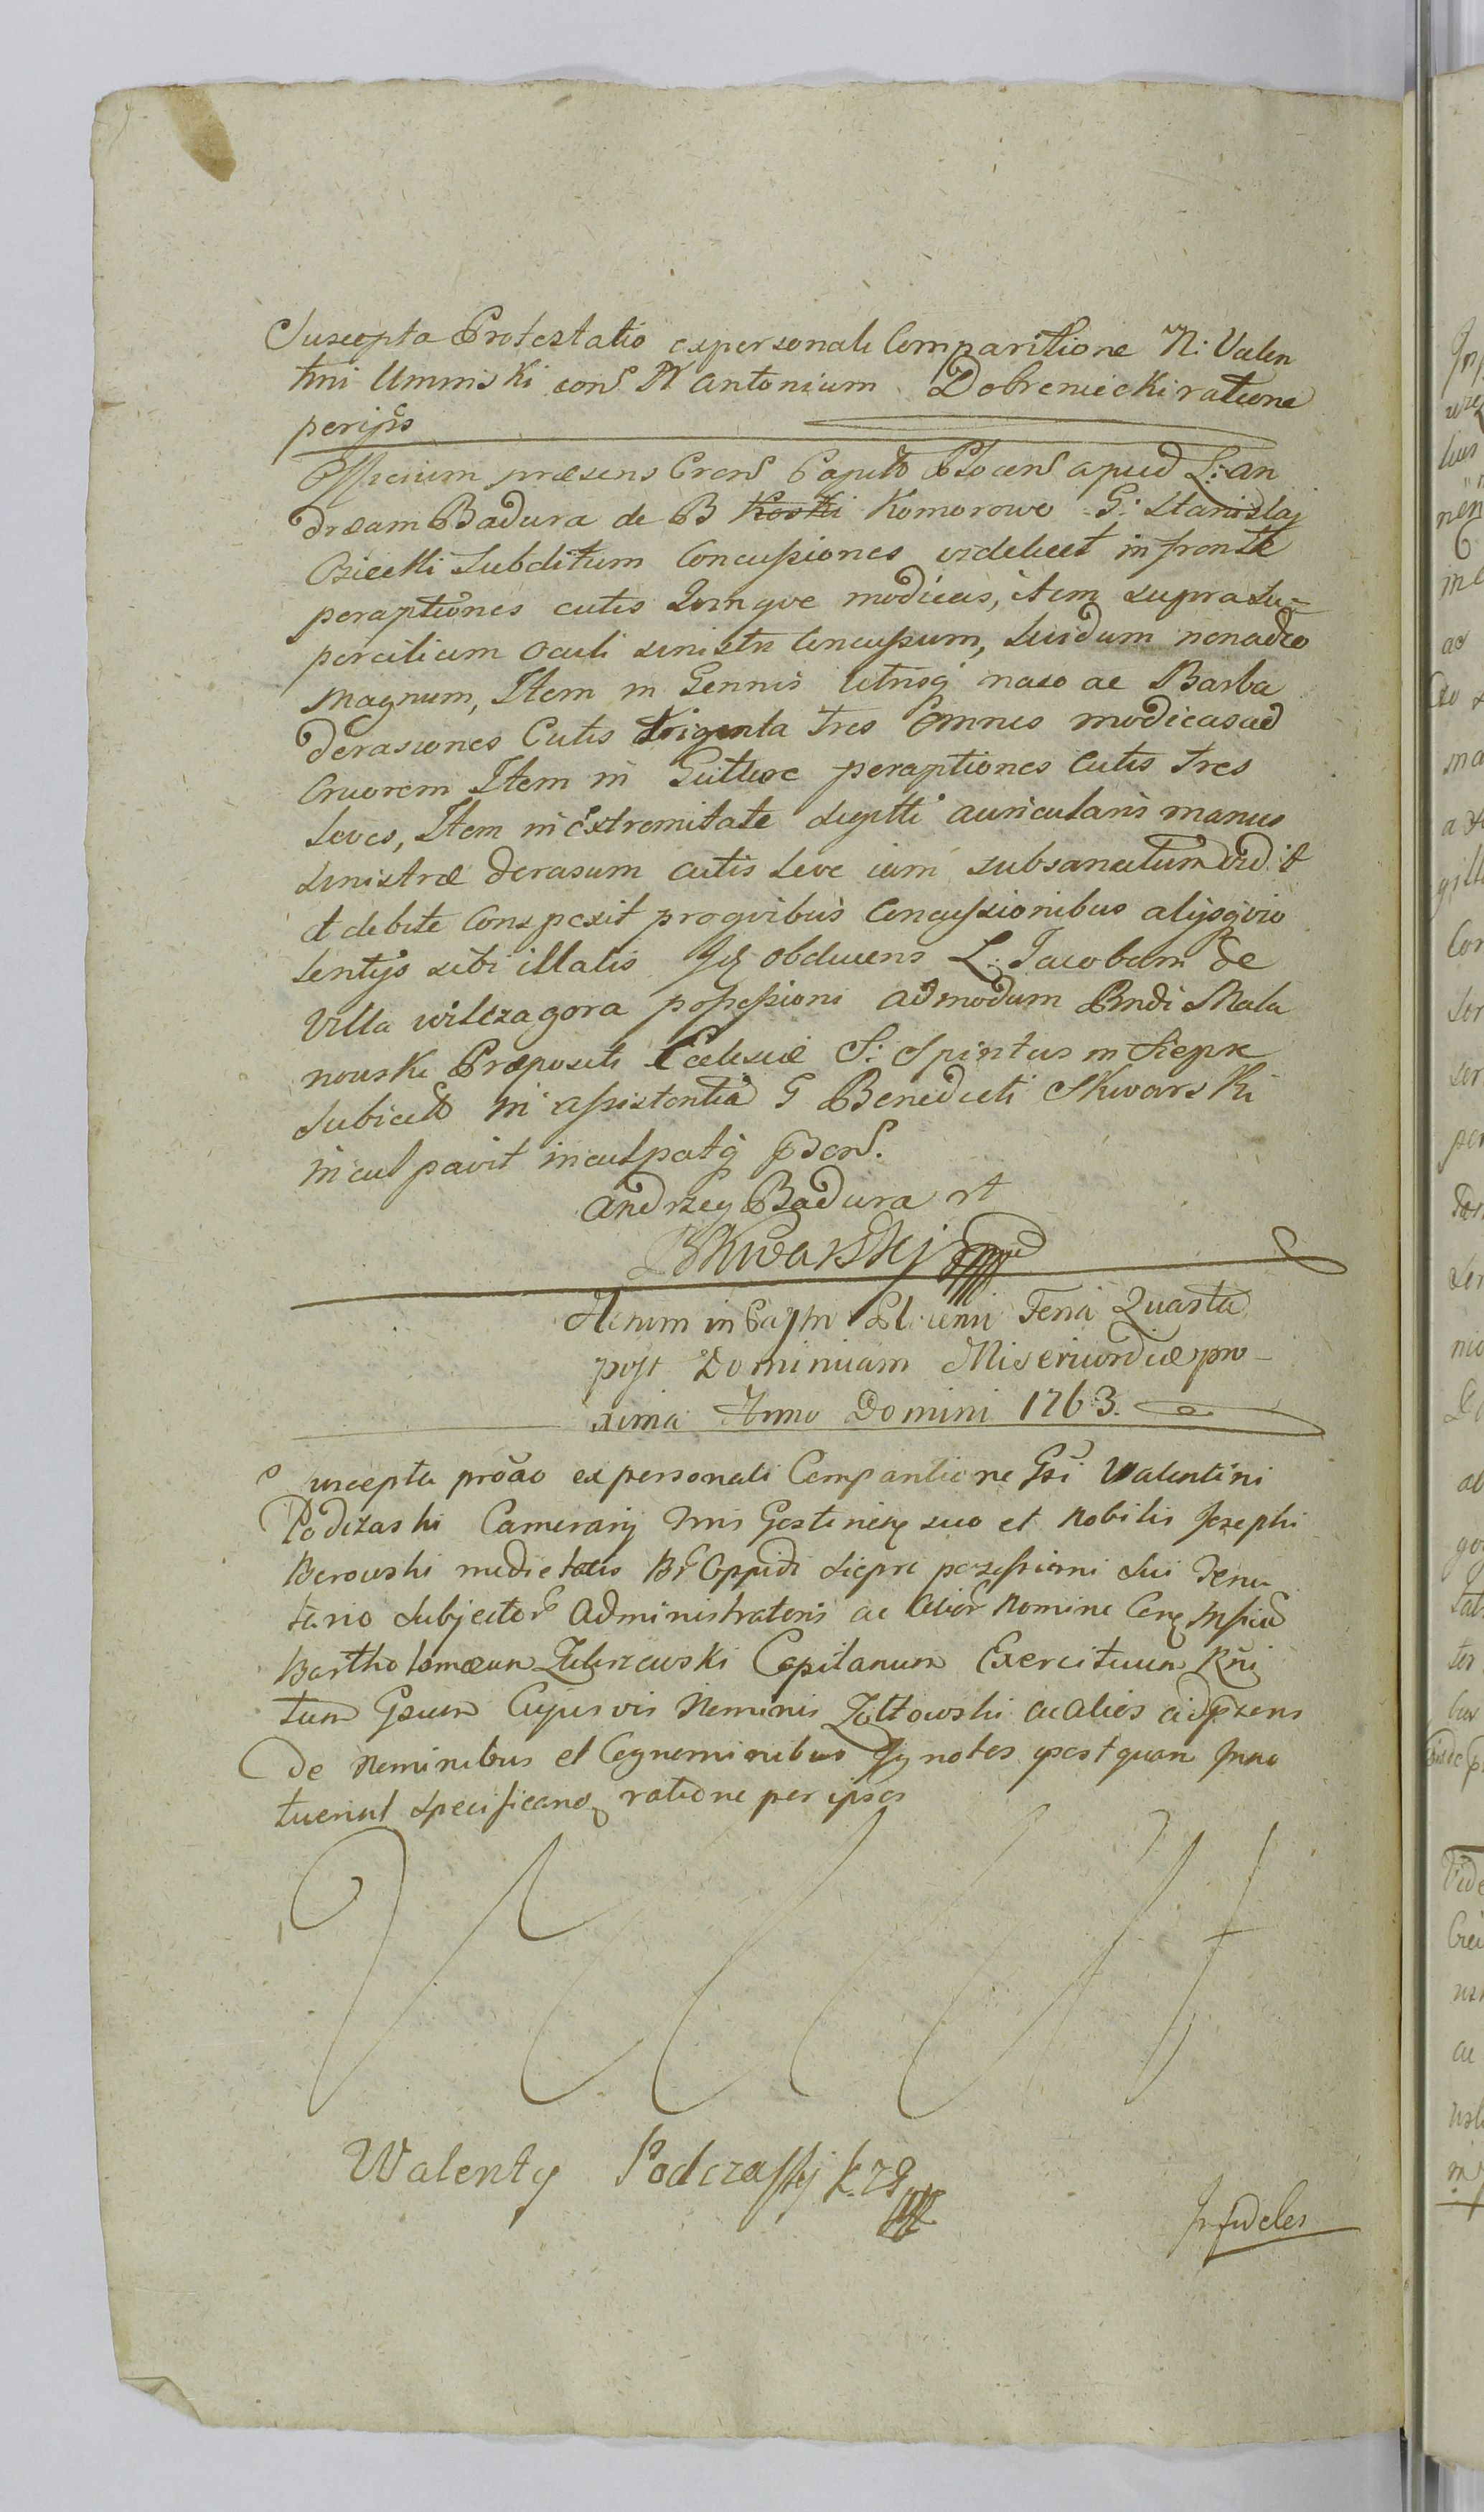 Suscepta Protestatio ex personali Comparitione N: Valen
tini Uminski con˜ N Antonium Dobreniecki ratione
per ips˜
Officium præsens Cren˜ Capit˜ Plocen˜ apud L: An
dræam Badura de B Koski Komorowo G: Stanislaj
Osiecki Subditum Concussiones videlicet in fronte
peraptiones cutis Quinque modicas, item supra su=
percilium oculi sinistri Concussum, Lividum non adeo
magnum, Item in Gennis Utrisq naso ac Barba
derasiones Cutis Triginta Tres Omnes modicas ad
Cruorem Item in Guttore peraptiones Cutis Tres
Leves, Item in Extremitate digitti auricularis manus
sinistræ derasum cutis Leve iam subsanatum vidit
et debite Conspexit pro quibus Concussionibus alijsq vio
Lentijs sibi illatis Jdq obducens L: Jacobum de
Villa Wilczagora possessioni admodum Rndi Mala
nowski Præpositi Ecclesiæ S: Spiritus in Siepre
Subicit˜ in assistentia G Benedicti Skwarski
inculpavit inculpatq præsen˜.
Andrzey Badura rt
BSkwarskij
Actum in Castro Plocensi Feria Quarta
post Dominicam Misericordiæ pro-
xima Anno Domini 1763.
Suscepta pro˜ao ex personali Comparitione Gsi Walentini
Podczaski Camerarij Gostinen˜ suo et Nobilis Josephi
Borowski medietatis Br˜ Oppidi Siepre possessioni sui Tenu
tario Subjector˜ Administratoris ac Alior˜ Nomine
Bartholomæum Zubrzewski Capitanum Exercituum Rni
tum Gsum Cujusvis Nominis Zoltowski ac alios ad præsens
de Nominibus et Cognominibus Jgnotos postquam Jnno
tuerint specificanos ratione per ipsos
Walenty Podczaskij K. Z G
Jnfideles